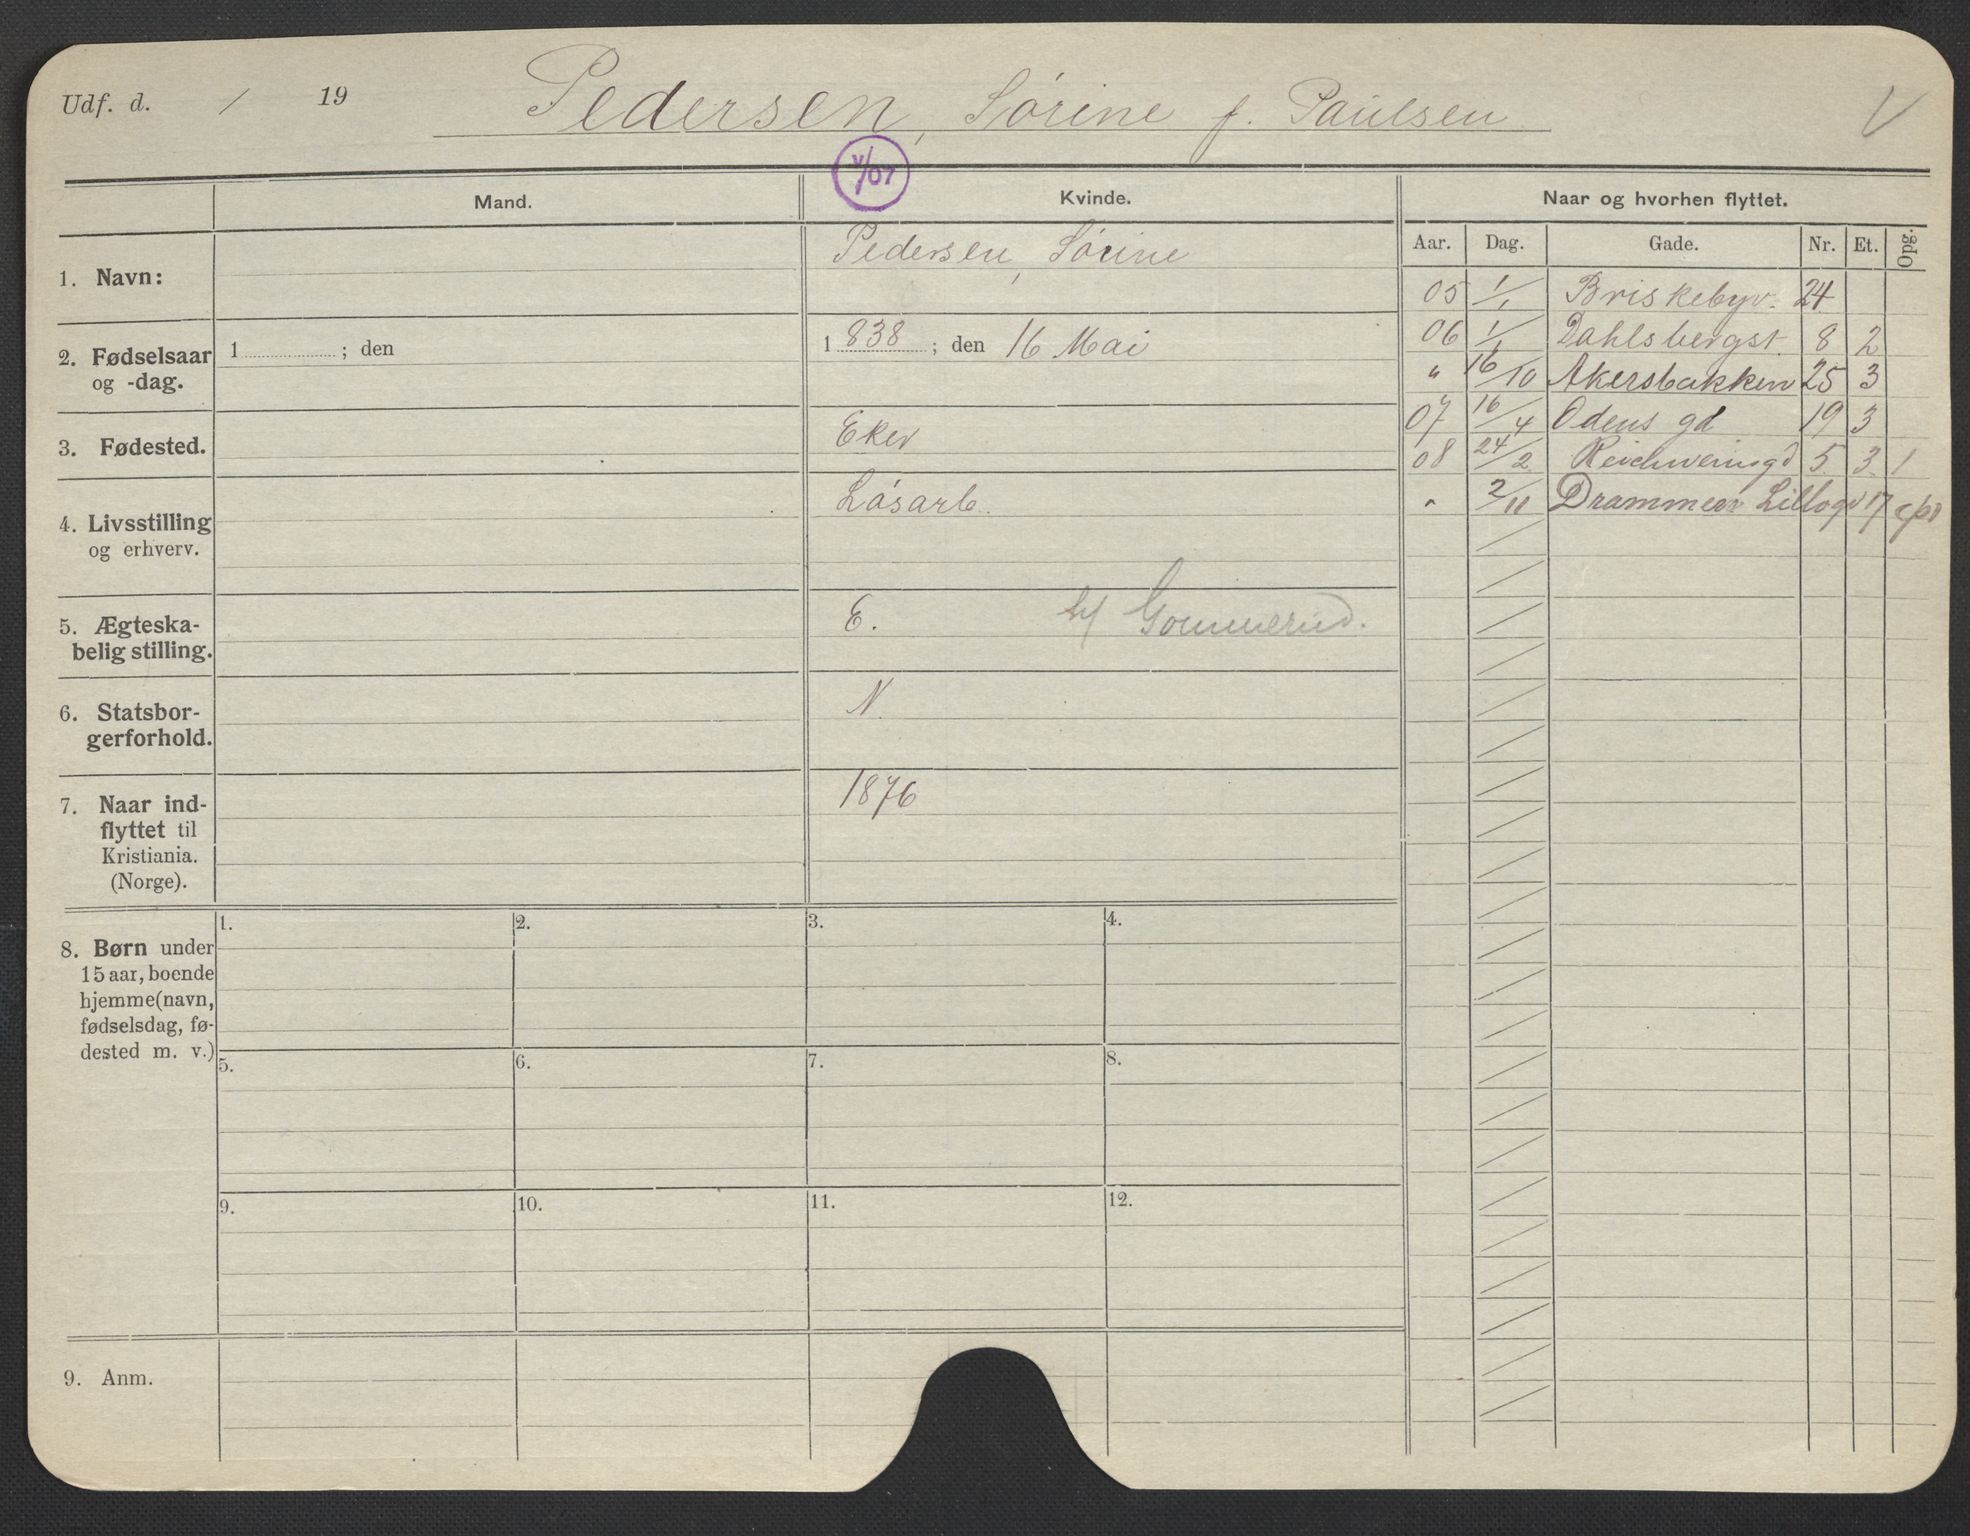 Udf. d. / 19
Pedersen, Sørine f. Paulsen
V
V/07
Mand.
Kvinde.
Naar og hvorhen flyttet.
Aar. Dag. Gade. Nr. Et. Opg.
1. Navn:
Pedersen, Sørine
2. Fødselsaar
og -dag.
1 ; den
1 838 ; den 16 Mai
3. Fødested.
Eker
4. Livsstilling
og erhverv.
Løsarb.
5. Ægteska-
belig stilling.
E.
Gommerud.
6. Statsbor-
gerforhold.
N.
7. Naar ind-
flyttet til
Kristiania.
(Norge).
1876
05 1/1 Briskebyv. 24
06 1/1 Dahlsbergst. 8 2
" 16/10 Akersbakken 25 3
07 16/4 Odens gd 19 3
08 24/2 Reichweinsgd 5 3 1
" 2/11 Drammen Lillogd 17
8. Børn under
15 aar, boende
hjemme (navn,
fødselsdag, fø-
dested m. v.)
1. 2. 3. 4.
5. 6. 7. 8.
9. 10. 11. 12.
9. Anm.